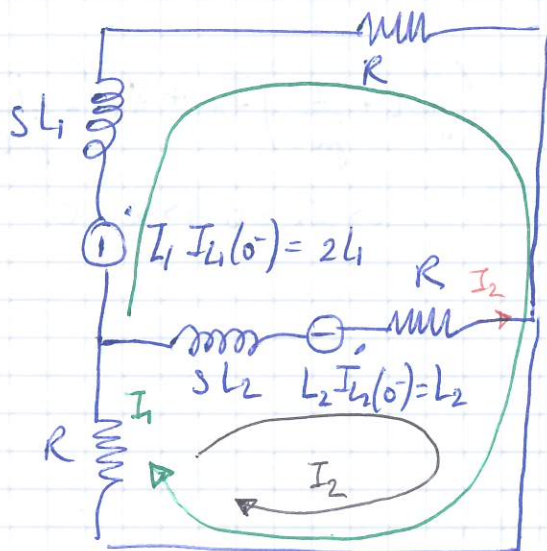 R
SL₁
L₁ I_L₁(0⁻) = 2L₁
R
I₂
SL₂
L₂ I_L₂(0⁻) = L₂
I₁
R
I₂